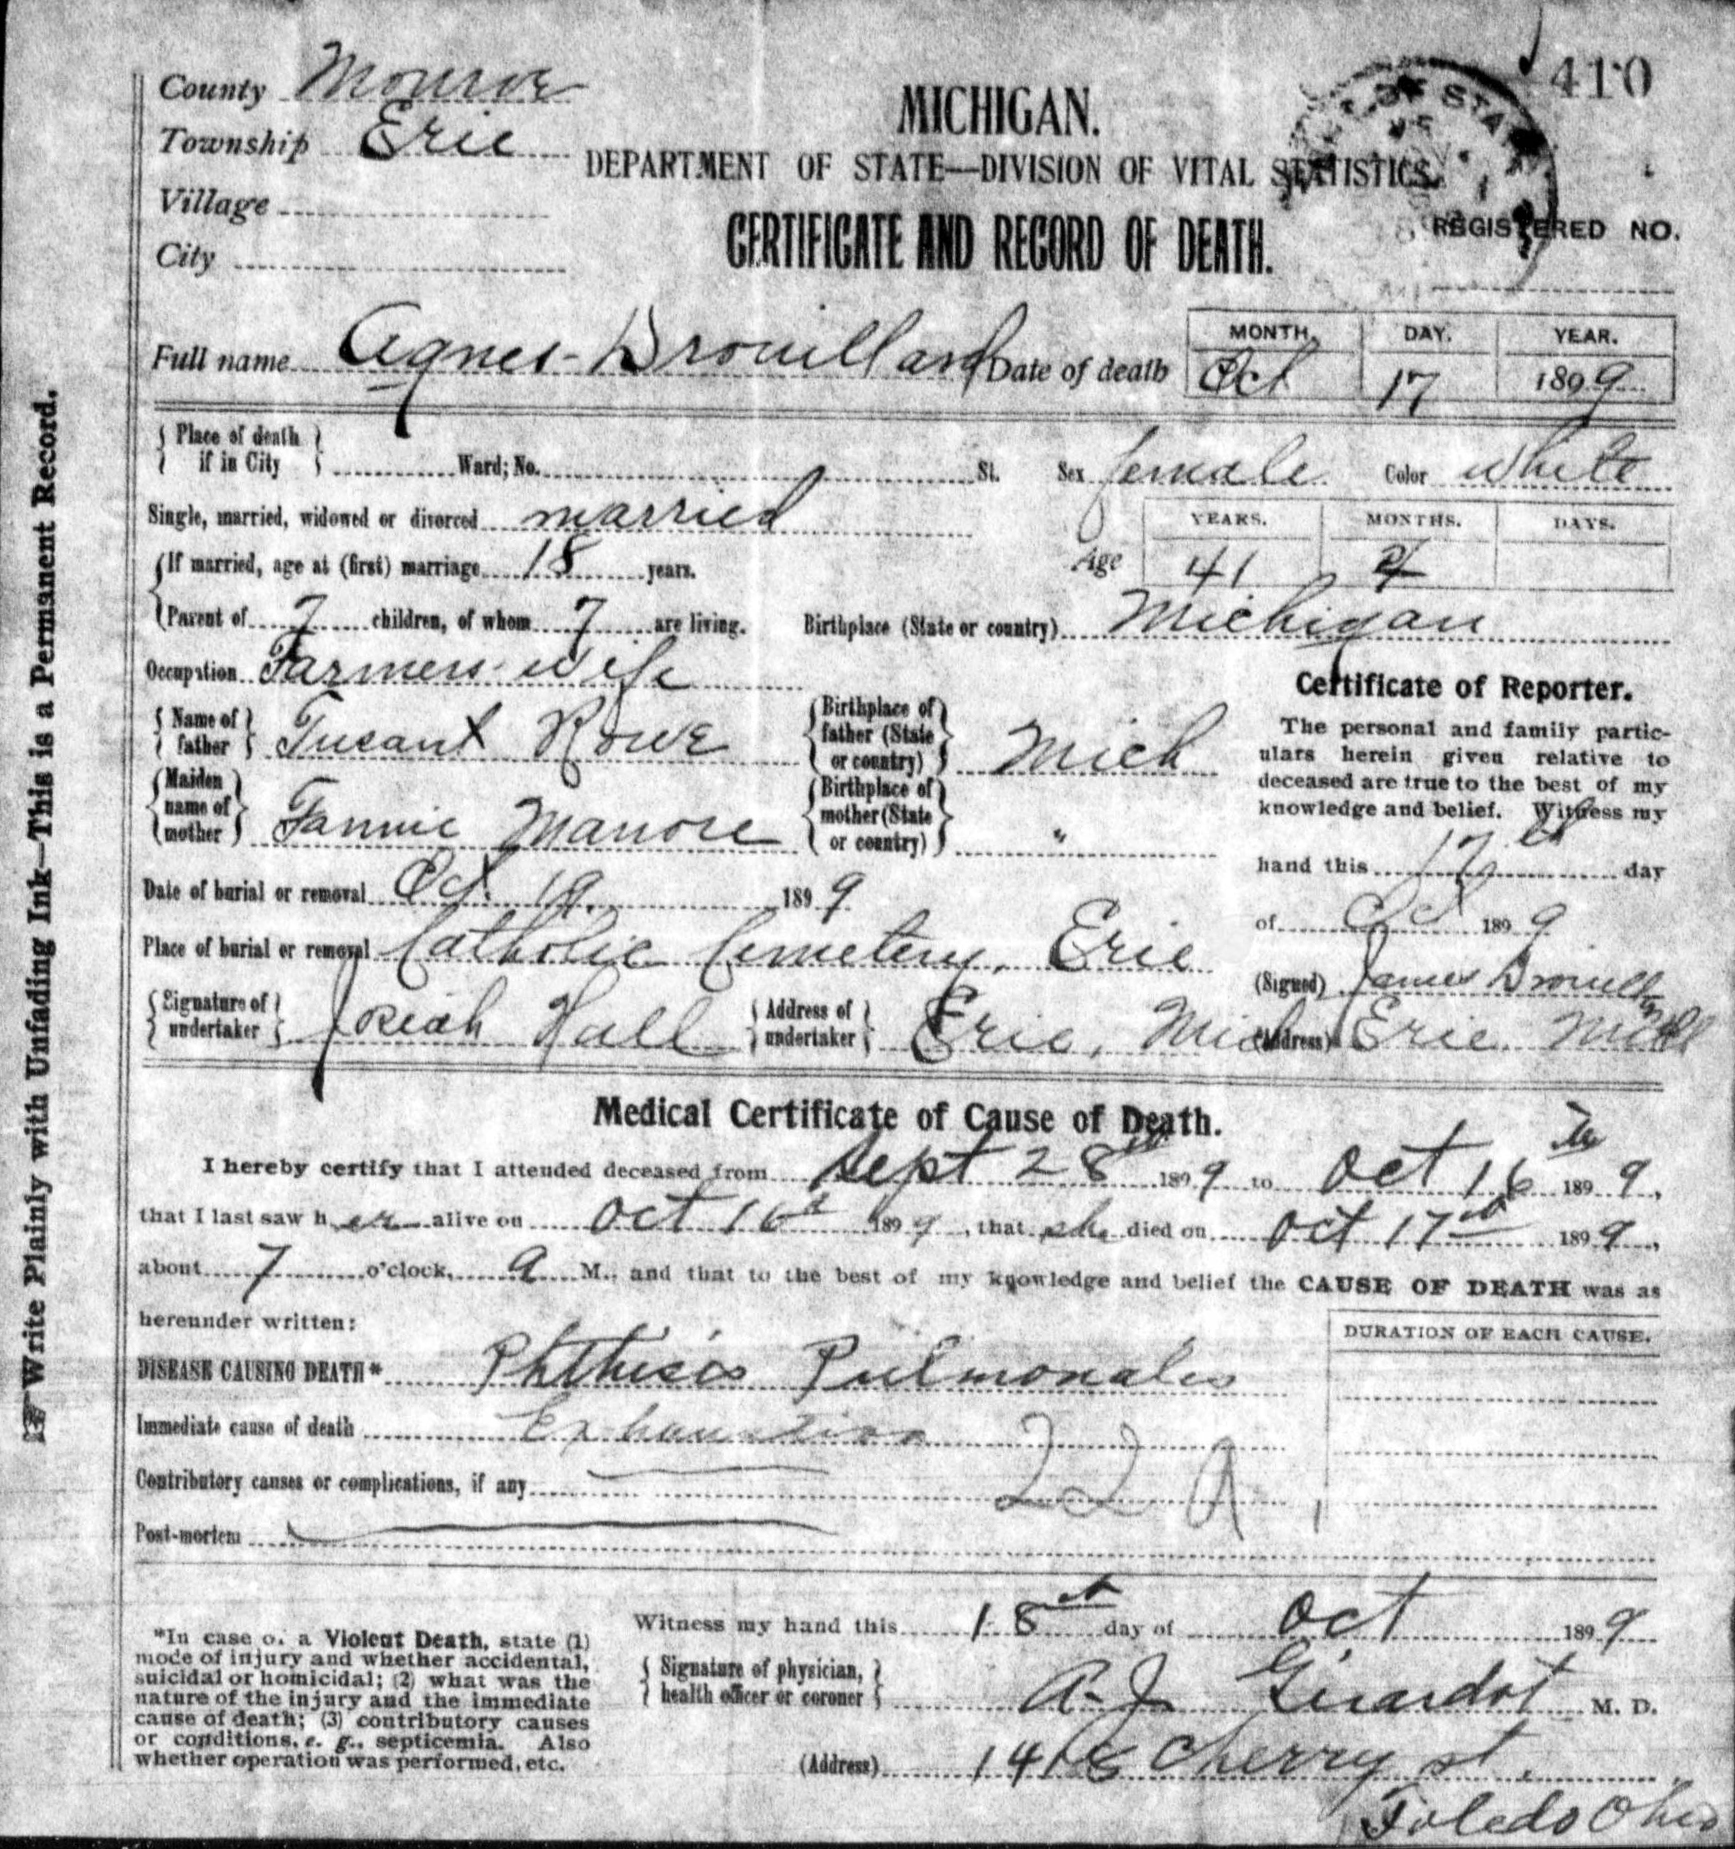 410
County Monroe
Township Erie
Village
City
MICHIGAN.
DEPARTMENT OF STATE—DIVISION OF VITAL STATISTICS.
CERTIFICATE AND RECORD OF DEATH.
OF STATE
REGISTERED NO.
Full name Agnes Drouillard Date of death
MONTH. DAY. YEAR.
Oct 17 1899
Write Plainly with Unfading Ink—This is a Permanent Record.
Place of death if in City Ward; No. St. Sex female Color white
Single, married, widowed or divorced married
Age YEARS. MONTHS. DAYS.
41
If married, age at (first) marriage 18 years.
Parent of 7 children, of whom 7 are living. Birthplace (State or country) Michigan
Occupation Farmers wife
Name of father Tusant Rowe Birthplace of father (State or country) Mich
Maiden name of mother Fannie Manore Birthplace of mother (State or country) "
Date of burial or removal Oct. 19. 1899
Place of burial or removal Catholic Cemetery, Erie
Signature of undertaker Josiah Hall Address of undertaker Erie, Mich
Certificate of Reporter.
The personal and family partic-
ulars herein given relative to
deceased are true to the best of my
knowledge and belief. Witness my
hand this 17th day
of Oct 1899
(Signed) James Drouillard
(Address) Erie. Mich
Medical Certificate of Cause of Death.
I hereby certify that I attended deceased from Sept 28th 1899 to Oct 16th 1899,
that I last saw her alive on Oct 16th 1899, that she died on Oct 17th 1899,
about 7 o'clock, a M., and that to the best of my knowledge and belief the CAUSE OF DEATH was as
hereunder written:
DURATION OF EACH CAUSE.
DISEASE CAUSING DEATH* Phthisis Pulmonalis
Immediate cause of death Exhaustion
Contributory causes or complications, if any
22 a
Post-mortem
*In case of a Violent Death, state (1)
mode of injury and whether accidental,
suicidal or homicidal; (2) what was the
nature of the injury and the immediate
cause of death; (3) contributory causes
or conditions, e. g., septicemia. Also
whether operation was performed, etc.
Witness my hand this 18th day of Oct 1899
Signature of physician, health officer or coroner A. J. Girardot M. D.
(Address) Cherry st.
Toledo Ohio